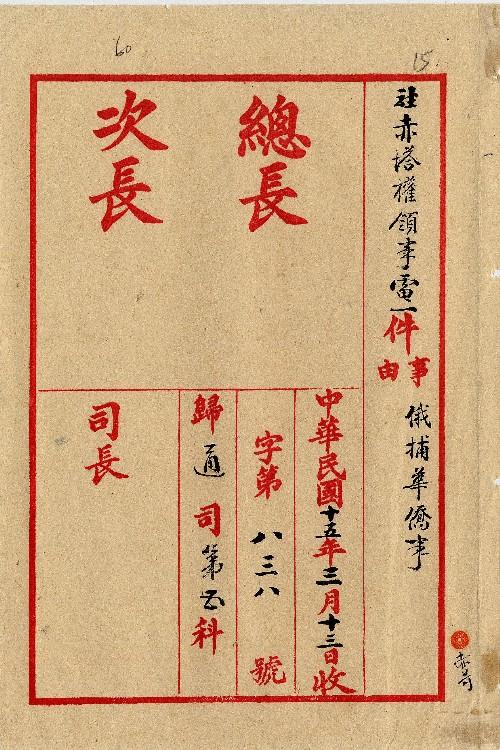 15.
60
駐赤塔權領事電一件
事由
俄捕華僑事
總長
次長
中華民國十五年三月十三日收
字第八三八號
歸通司第五科
司長